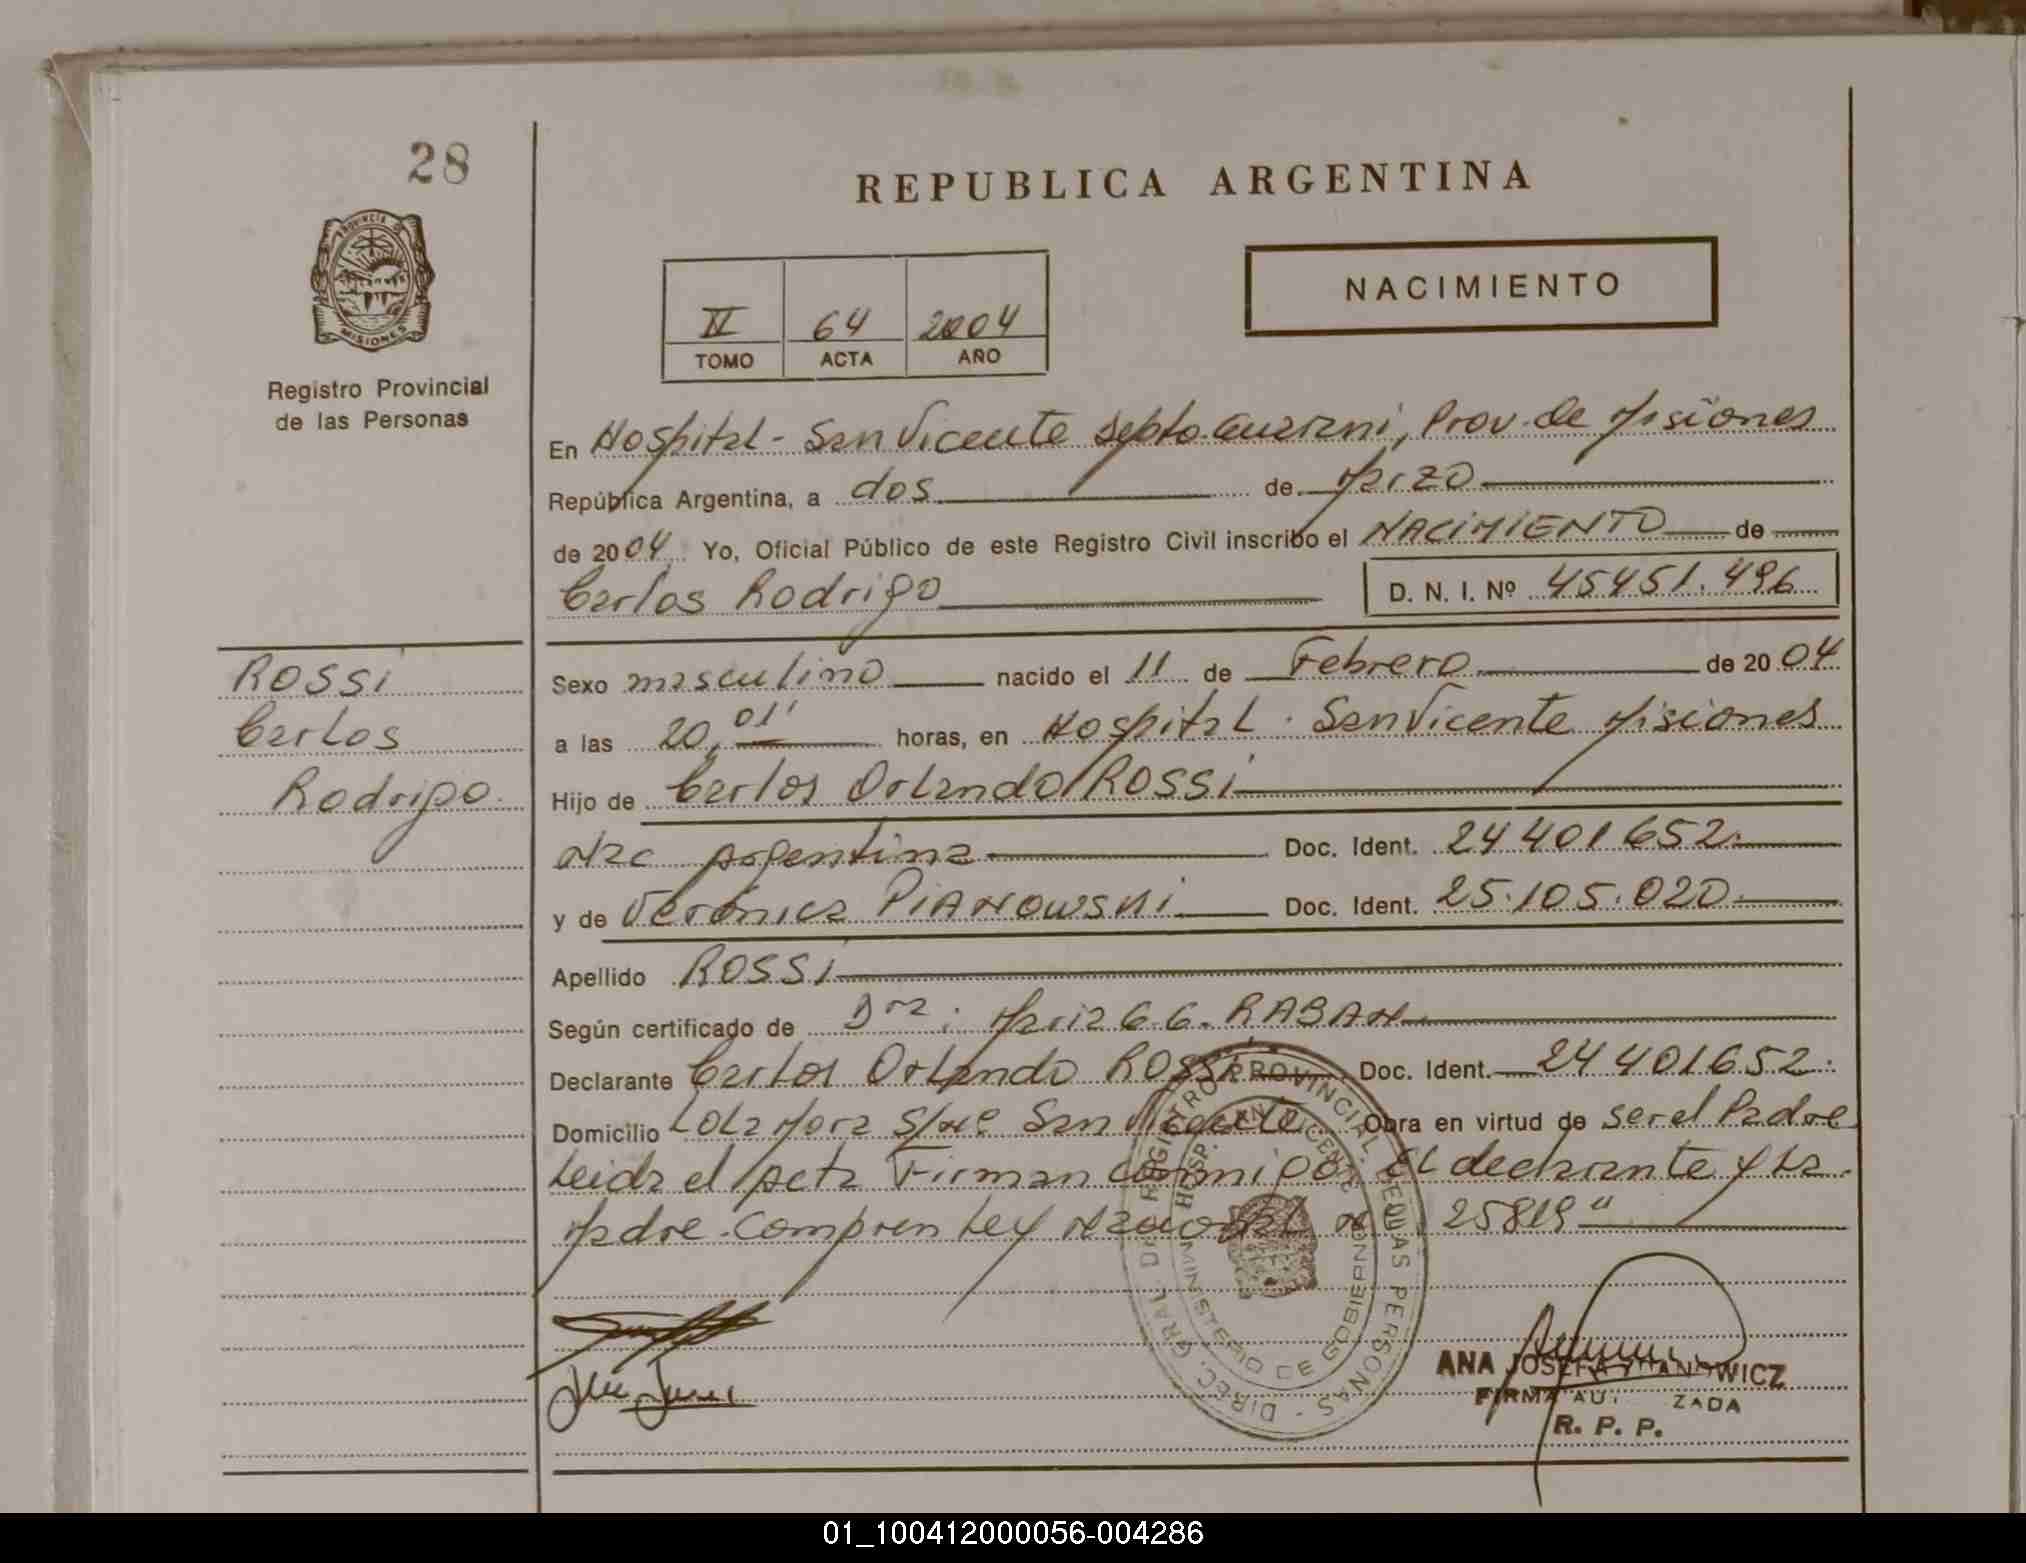 28
REPUBLICA ARGENTINA
PROVINCIA DE
MISIONES
Registro Provincial
de las Personas
NACIMIENTO
IV 64 2004
TOMO ACTA AÑO
En Hospital - San Vicente Depto. Guarani, Prov. de Misiones
República Argentina, a dos de Marzo
de 2004 Yo, Oficial Público de este Registro Civil inscribo el NACIMIENTO de
Carlos Rodrigo D. N. I. Nº 45451.496
ROSSI
Carlos
Rodrigo
Sexo masculino nacido el 11 de Febrero de 2004
a las 20,01' horas, en Hospital - San Vicente Misiones
Hijo de Carlos Orlando ROSSI
Nac Argentina Doc. Ident. 24 401 652.
y de Verónica PIANOWSKI Doc. Ident. 25.105.020
Apellido ROSSI
Según certificado de Dra: Maria G.G. RABAN
Declarante Carlos Orlando ROSSI Doc. Ident. 24 401652.
Domicilio Lola Mora S/Nº San Vicente. Obra en virtud de ser el Padre
Leida el Acta Firman Conmigo El declarante y La
Madre. Compren Ley Nacional Nº 25819"
DIREC. GRAL. DE REGISTRO PROVINCIAL DE LAS PERSONAS -
HOSP. SAN VICENTE
MINISTERIO DE GOBIERNO
ANA JOSEFA
FIRMA AUTORIZADA
R. P. P.
01_100412000056-004286